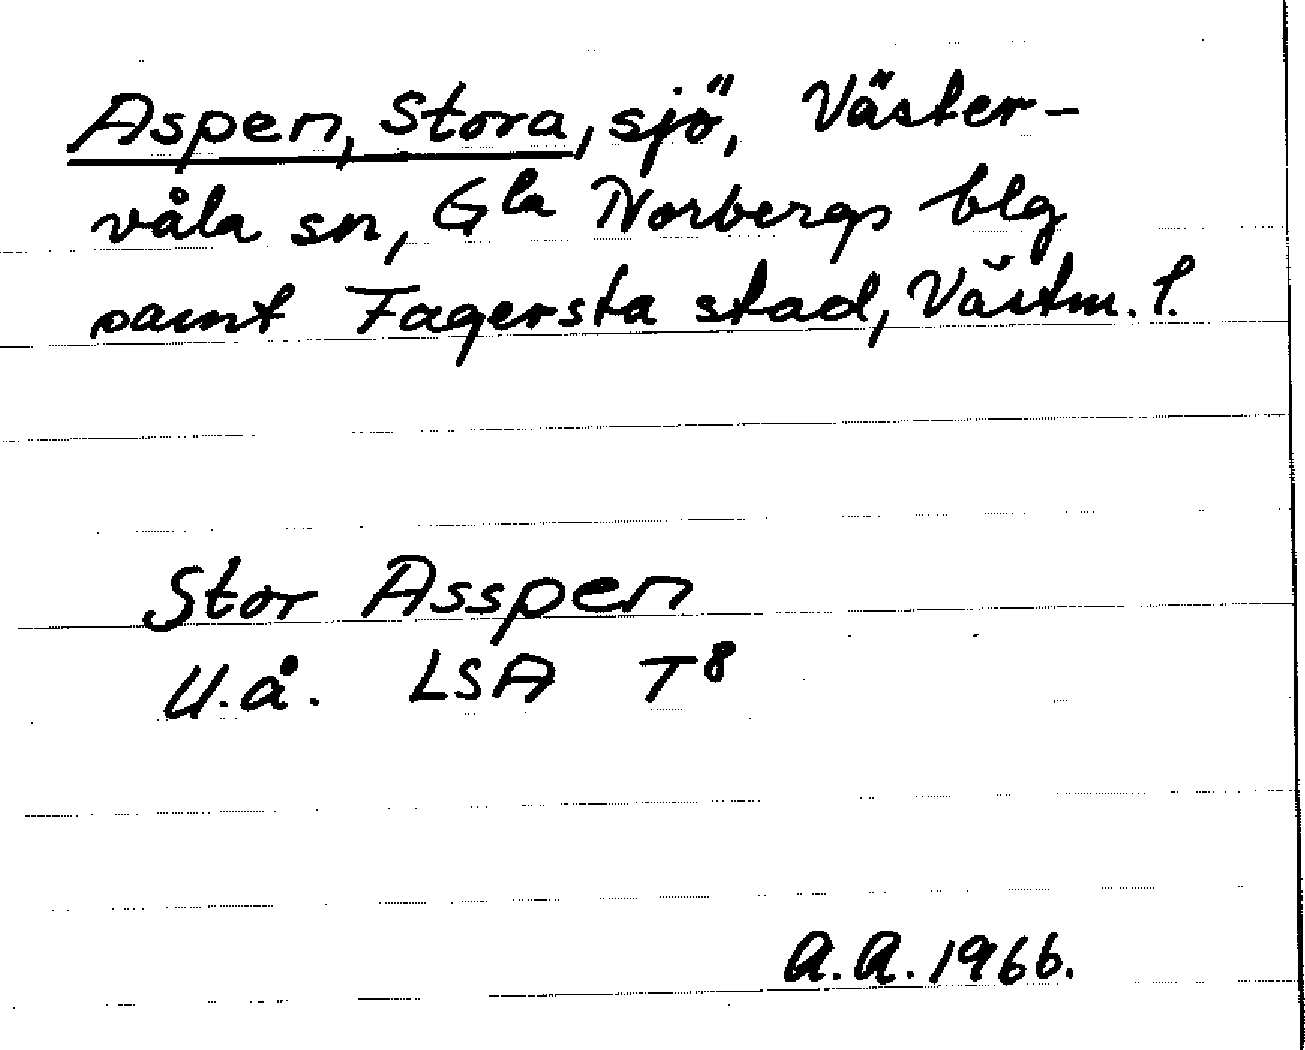 Aspen, Stora, sjö, Väster-
våla sn, Gla Norbergs blg
samt Fagersta stad, Västm. l.
Stor Asspen
U.å. LSA T8
A.A. 1966.